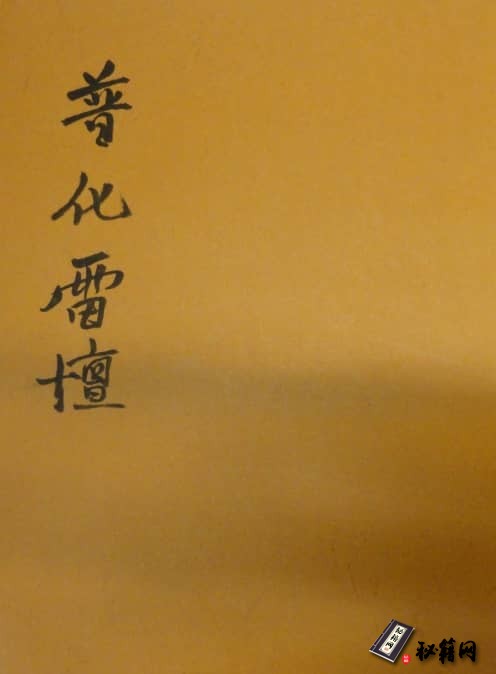 普化雷壇
秘籍网